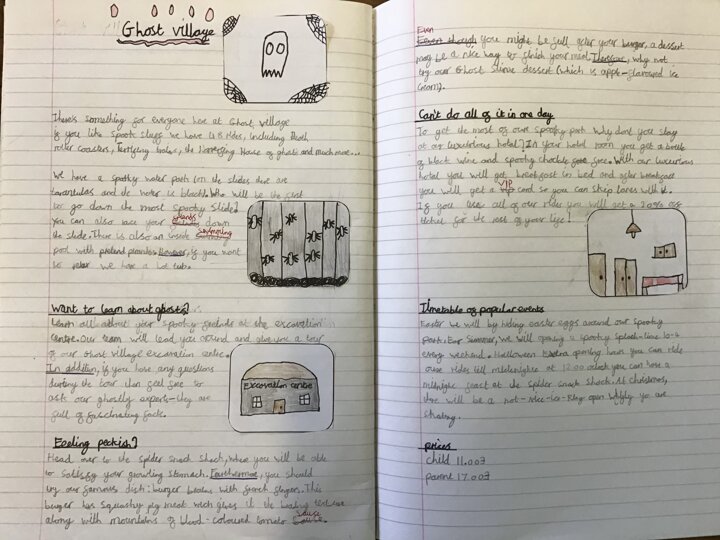 Ghost village
There's something for everyone here at Ghost village
if you like spooky stuff we have 48 rides, including Death
roller coasters, terrifying trains, the Horrifying House of ghosts and much more...
We have a spooky water park (on the slides there are
tarantulas and the water is black). Who will be the first
to go down the most Spooky Slide?
You can also race your friends down
the slide. There is also an inside swimming
pool with pretend piranhas. However, if you want
to relax we have a hot tub.
Want to learn about ghosts?
Learn all about your spooky friends at the excavation
centre. Our team will lead you around and give you a tour
of our Ghost Village excavation centre.
In addition, if you have any questions
during the tour then feel free to
ask our ghostly experts-they are
full of fascinating facts.
Excavation centre
Feeling peckish?
Head over to the spider snack shack, where you will be able
to satisfy your growling stomach. Furthermore, you should
try our famous dish: burger brains with french fingers. This
burger has squashy pig meat wich gives it the
along with mountains of blood-coloured tomato sauce.
Even
though you might be full after your burger, a dessert
may be a nice way to finish your meal. Therefore, why not
try our Ghost slime dessert (which is apple-flavoured ice
cream).
Can't do all of it in one day
To get the most of our spooky park why dont you stay
at our luxurious hotel? In your hotel room you get a bottle
of black wine and spooky chocolate for free. With our luxurious
hotel you will get breakfast in bed and after breakfast
you will get a VIP card so you can skip lanes with it.
If you use all of our rides you will get a 20% off
ticket for the rest of your life!
Timetable of popular events
Easter we will by hiding easter eggs around our spooky
park. Summer, we will opening a spooky splash-time 10-4
every weekend. Halloween opening hours you can ride
our rides till midnight at 12:00 oclock you can have a
midnight feast at the Spider Snack Shack. At Christmas,
there will be a not-nice-ice-Ring open
prices
child 11.00£
parent 17.00£